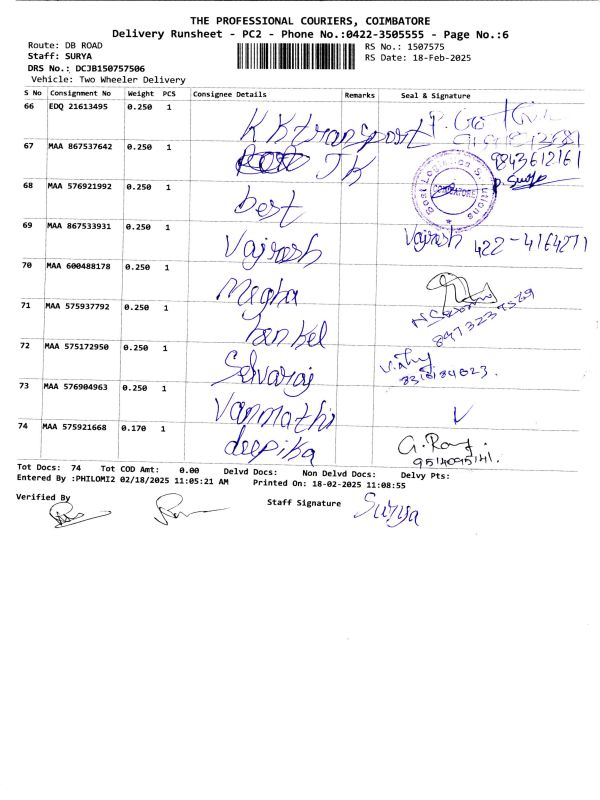 THE PROFESSIONAL COURIERS, COIMBATORE
Delivery Runsheet - PC2 - Phone No.:0422-3505555 - Page No.:6
Route: DB ROAD
RS No.: 1507575
Staff: SURYA
RS Date: 18-Feb-2025
DRS No.: DCJB150757506
Vehicle: Two Wheeler Delivery
S No Consignment No Weight PCS Consignee Details Remarks Seal & Signature
66 EDQ 21613495 0.250 1 KKtransport
67 MAA 867537642 0.250 1 JK 9843612161
68 MAA 576921992 0.250 1 best
COIMBATORE
69 MAA 867533931 0.250 1 Vajrash Vajrash 422-4164271
70 MAA 600488178 0.250 1 Megha
71 MAA 575937792 0.250 1 henkel
72 MAA 575172950 0.250 1 Selvaraj
73 MAA 576904963 0.250 1 Vanmathi
74 MAA 575921668 0.170 1 deepika
Tot Docs: 74 Tot COD Amt: 0.00 Delvd Docs: Non Delvd Docs: Delvy Pts:
Entered By :PHILOMI2 02/18/2025 11:05:21 AM Printed On: 18-02-2025 11:08:55
Verified By Staff Signature Surya